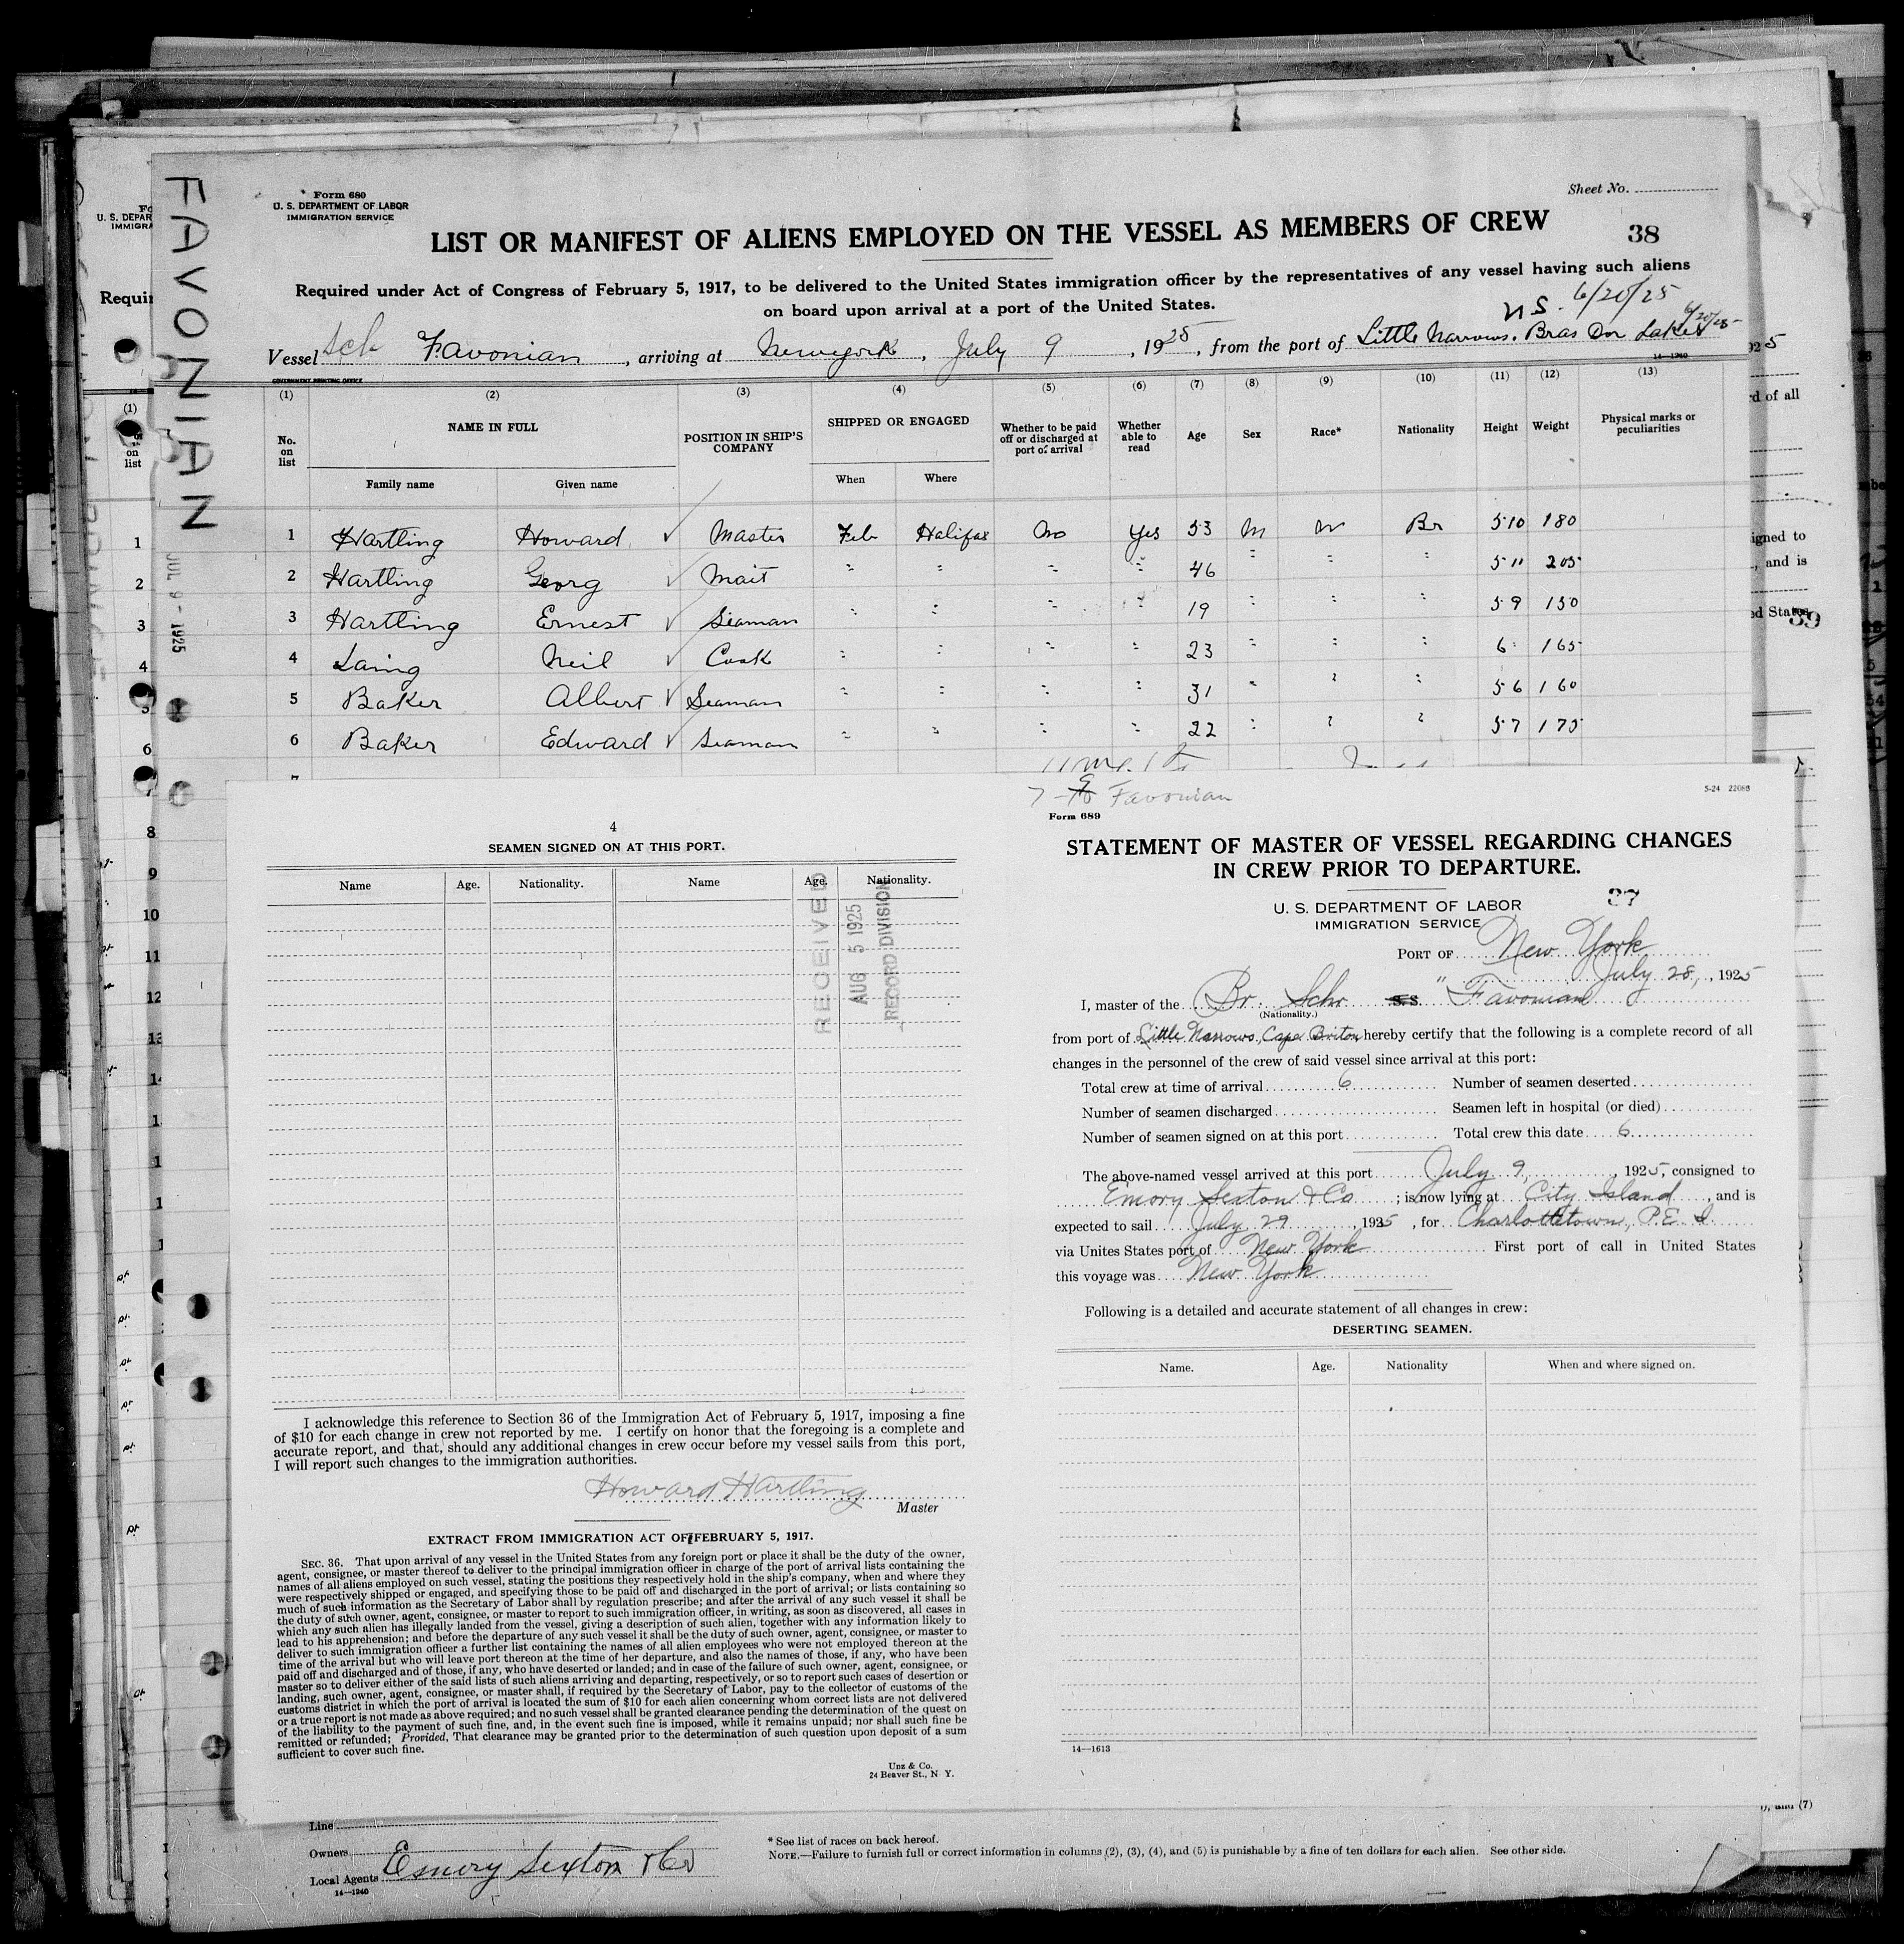 FAVONIAN
JUL 9 - 1925
Form 680
U. S. DEPARTMENT OF LABOR
IMMIGRATION SERVICE
Sheet No.
LIST OR MANIFEST OF ALIENS EMPLOYED ON THE VESSEL AS MEMBERS OF CREW
38
Required under Act of Congress of February 5, 1917, to be delivered to the United States immigration officer by the representatives of any vessel having such aliens
on board upon arrival at a port of the United States.
N.S. 6/20/25
6/20/25
Vessel Sch Favonian, arriving at Newyork, July 9, 1925, from the port of Little Narrows. Bras Dor Lakes
GOVERNMENT PRINTING OFFICE
14—1240
(1) (2) (3) (4) (5) (6) (7) (8) (9) (10) (11) (12) (13)
No. on list
NAME IN FULL
Family name
Given name
POSITION IN SHIP'S COMPANY
SHIPPED OR ENGAGED
When
Where
Whether to be paid off or discharged at port of arrival
Whether able to read
Age
Sex
Race*
Nationality
Height
Weight
Physical marks or peculiarities
1 Hartling Howard ✓ Master Feb Halifax No Yes 53 M W Br 5 10 180
2 Hartling Georg ✓ Mait " " " " 46 " " " 5 11 205
3 Hartling Ernest ✓ Seaman " " " " 19 " " " 5 9 150
4 Laing Neil ✓ Cook " " " " 23 " " " 6 165
5 Baker Albert ✓ Seaman " " " " 31 " " " 5 6 160
6 Baker Edward ✓ Seaman " " " " 22 " " " 5 7 175
4
SEAMEN SIGNED ON AT THIS PORT.
Name Age. Nationality. Name Age. Nationality.
RECEIVED
AUG 5 1925
RECORD DIVISION
I acknowledge this reference to Section 36 of the Immigration Act of February 5, 1917, imposing a fine
of $10 for each change in crew not reported by me. I certify on honor that the foregoing is a complete and
accurate report, and that, should any additional changes in crew occur before my vessel sails from this port,
I will report such changes to the immigration authorities.
Howard Hartling
Master
EXTRACT FROM IMMIGRATION ACT OF FEBRUARY 5, 1917.
SEC. 36. That upon arrival of any vessel in the United States from any foreign port or place it shall be the duty of the owner,
agent, consignee, or master thereof to deliver to the principal immigration officer in charge of the port of arrival lists containing the
names of all aliens employed on such vessel, stating the positions they respectively hold in the ship's company, when and where they
were respectively shipped or engaged, and specifying those to be paid off and discharged in the port of arrival; or lists containing so
much of such information as the Secretary of Labor shall by regulation prescribe; and after the arrival of any such vessel it shall be
the duty of such owner, agent, consignee, or master to report to such immigration officer, in writing, as soon as discovered, all cases in
which any such alien has illegally landed from the vessel, giving a description of such alien, together with any information likely to
lead to his apprehension; and before the departure of any such vessel it shall be the duty of such owner, agent, consignee, or master to
deliver to such immigration officer a further list containing the names of all alien employees who were not employed thereon at the
time of the arrival but who will leave port thereon at the time of her departure, and also the names of those, if any, who have been
paid off and discharged and of those, if any, who have deserted or landed; and in case of the failure of such owner, agent, consignee, or
master so to deliver either of the said lists of such aliens arriving and departing, respectively, or so to report such cases of desertion or
landing, such owner, agent, consignee, or master shall, if required by the Secretary of Labor, pay to the collector of customs of the
customs district in which the port of arrival is located the sum of $10 for each alien concerning whom correct lists are not delivered
or a true report is not made as above required; and no such vessel shall be granted clearance pending the determination of the quest on
of the liability to the payment of such fine, and, in the event such fine is imposed, while it remains unpaid; nor shall such fine be
remitted or refunded; Provided, That clearance may be granted prior to the determination of such question upon deposit of a sum
sufficient to cover such fine.
UDZ & CO.
24 Beaver St., N Y.
7-9 Favonian
Form 689
5-24 22088
STATEMENT OF MASTER OF VESSEL REGARDING CHANGES
IN CREW PRIOR TO DEPARTURE.
37
U. S. DEPARTMENT OF LABOR
IMMIGRATION SERVICE
PORT OF New York
July 28, 1925
I, master of the Br. Schr S.S. "Favonian
(Nationality.)
from port of Little Narrows, Cape Briton hereby certify that the following is a complete record of all
changes in the personnel of the crew of said vessel since arrival at this port:
Total crew at time of arrival 6 Number of seamen deserted
Number of seamen discharged Seamen left in hospital (or died)
Number of seamen signed on at this port Total crew this date 6
The above-named vessel arrived at this port July 9, 1925, consigned to
Emory Sexton & Co ; is now lying at City Island, and is
expected to sail July 29, 1925, for Charlottetown, P.E.I.
via Unites States port of New York First port of call in United States
this voyage was New York
Following is a detailed and accurate statement of all changes in crew:
DESERTING SEAMEN.
Name. Age. Nationality When and where signed on.
14—1613
Line
Owners
Local Agents Emory Sexton & Co
14—1240
* See list of races on back hereof.
NOTE.—Failure to furnish full or correct information in columns (2), (3), (4), and (5) is punishable by a fine of ten dollars for each alien. See other side.